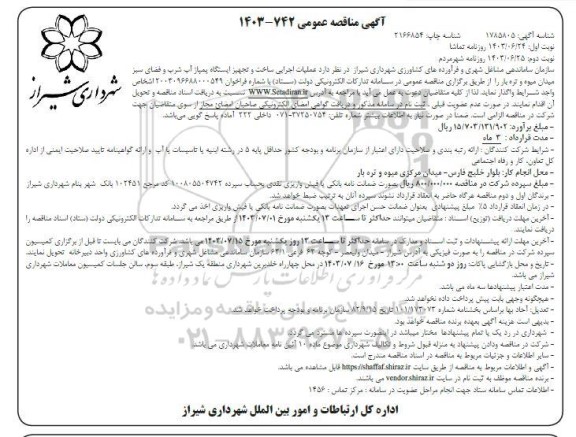 آگهی مناقصه عمومی ۷۴۲-۱۴۰۳
شناسه آگهی: ۱۷۸۵۸۰۵ شناسه چاپ: ۲۱۶۶۸۵۴
نوبت اول: ۱۴۰۳/۰۶/۲۴ روزنامه تماشا
نوبت دوم: ۱۴۰۳/۰۶/۲۵ روزنامه شهرمردم
شهرداری شیراز
سازمان ساماندهی مشاغل شهری و فرآورده های کشاورزی شهرداری شیراز در نظر دارد عملیات اجرایی ساخت و تجهیز ایستگاه پمپاژ آب شرب و فضای سبز
میدان میوه و تره بار را از طریق برگزاری مناقصه عمومی در سامانه تدارکات الکترونیکی دولت (ستاد) با شماره فراخوان ۲۰۰۳۰۹۶۶۸۸۰۰۰۵۴۹ به اشخاص
واجد شرایط واگذار نماید. لذا از کلیه متقاضیان دعوت به عمل می آید با مراجعه به آدرس www.Setadiran.ir نسبت به دریافت اسناد مناقصه و تحویل
آن اقدام نمایند. در صورت عدم عضویت قبلی ، ثبت نام در سامانه مذکور و دریافت گواهی امضای الکترونیکی صاحبان امضای مجاز از سوی متقاضیان جهت
شرکت در مناقصه الزامی است. ضمنا در صورت نیاز به اطلاعات بیشتر شماره تلفن ۳۷۲۵۰۷۵۴-۰۷۱ داخلی ۲۲۲ آماده پاسخ گویی می باشد.
- مبلغ برآورد: ۱۵/۷۰۳/۱۳۱/۹۰۲ ریال
- مدت قرارداد : ۳ ماه
- شرایط شرکت کنندگان : ارائه رتبه بندی و صلاحیت دارای اعتبار از سازمان برنامه و بودجه کشور حداقل پایه ۵ در رشته ابنیه یا تاسیسات یا آب و ارائه گواهینامه تایید صلاحیت ایمنی از اداره
کل تعاون، کار و رفاه اجتماعی
- محل انجام کار: بلوار خلیج فارس - میدان مرکزی میوه و تره بار
- مبلغ سپرده شرکت در مناقصه ۸۰۰/۰۰۰/۰۰۰ ریال بصورت ضمانت نامه بانکی یا فیش واریزی نقدی بحساب سپرده ۱۰۰۸۰۵۵۰۴۷۴۲ کد مرجع ۱۰۲۴۵۱ بانک شهر بنام شهرداری شیراز
- برندگان اول و دوم مناقصه هرگاه حاضر به انعقاد قرارداد نشوند سپرده آنان به ترتیب ضبط خواهد شد.
- در زمان انعقاد قرارداد ۵٪ مبلغ پیشنهادی بعنوان ضمانت حسن اجرای تعهدات بصورت ضمانت نامه بانکی یا فیش واریزی اخذ می گردد.
- آخرین مهلت دریافت (توزیع) اسناد : متقاضیان میتوانند حداکثر تا ساعت ۱۳ یکشنبه مورخ ۱۴۰۳/۰۷/۰۱ از طریق مراجعه به سامانه تدارکات الکترونیکی دولت (ستاد) اسناد مناقصه را
دریافت نمایند.
- آخرین مهلت ارائه پیشنهادات و ثبت اسناد و مدارک در سامانه حداکثر تا ساعت ۱۳ روز یکشنبه مورخ ۱۴۰۳/۰۷/۱۵ می باشد. شرکت کنندگان می بایست تا قبل از برگزاری کمیسیون
سپرده شرکت در مناقصه را به صورت فیزیکی به آدرس شیراز - میدان ولیعصر - کوچه ۶۳ فرعی ۶۳/۱ سازمان ساماندهی مشاغل شهری و فرآورده های کشاورزی واحد دبیرخانه تحویل نمایند.
- تاریخ و محل بازگشایی پاکات: روز دو شنبه ساعت ۱۳:۰۰ مورخ ۱۴۰۳/۰۷/۱۶ در محل چهارراه خلدبرین شهرداری منطقه یک شیراز، طبقه سوم، سالن جلسات کمیسیون معاملات شهرداری
می باشد.
- مدت اعتبار پیشنهادها سه ماه می باشد.
- هیچگونه وجهی بابت پیش پرداخت داده نخواهد شد.
- تعدیل: آحاد بها براساس بخشنامه شماره ۱۰۱/۱۷۳۰۷۳ تاریخ ۸۲/۹/۱۵ سازمان برنامه و بودجه پرداخت خواهد شد.
- بدیهی است هزینه آگهی بعهده برنده مناقصه خواهد بود.
- شهرداری در رد یک یا تمام پیشنهادها مختار میباشد در اینصورت سپرده ها مسترد می گردد.
- شرکت در مناقصه و دادن پیشنهاد به منزله قبول شروط و تکالیف شهرداری موضوع ماده ۱۰ آئین نامه معاملات شهرداری می باشد.
- سایر اطلاعات و جزئیات مربوط به مناقصه در اسناد مناقصه مندرج است.
- آگهی و اطلاعات مربوط به مناقصه از طریق سایت https://shaffaf.shiraz.ir قابل مشاهده می باشد.
- برنده مناقصه موظف به ثبت نام در سایت vendor.shiraz.ir می باشد.
- اطلاعات تماس سامانه ستاد جهت انجام مراحل عضویت در سامانه : مرکز تماس : ۱۴۵۶
اداره کل ارتباطات و امور بین الملل شهرداری شیراز